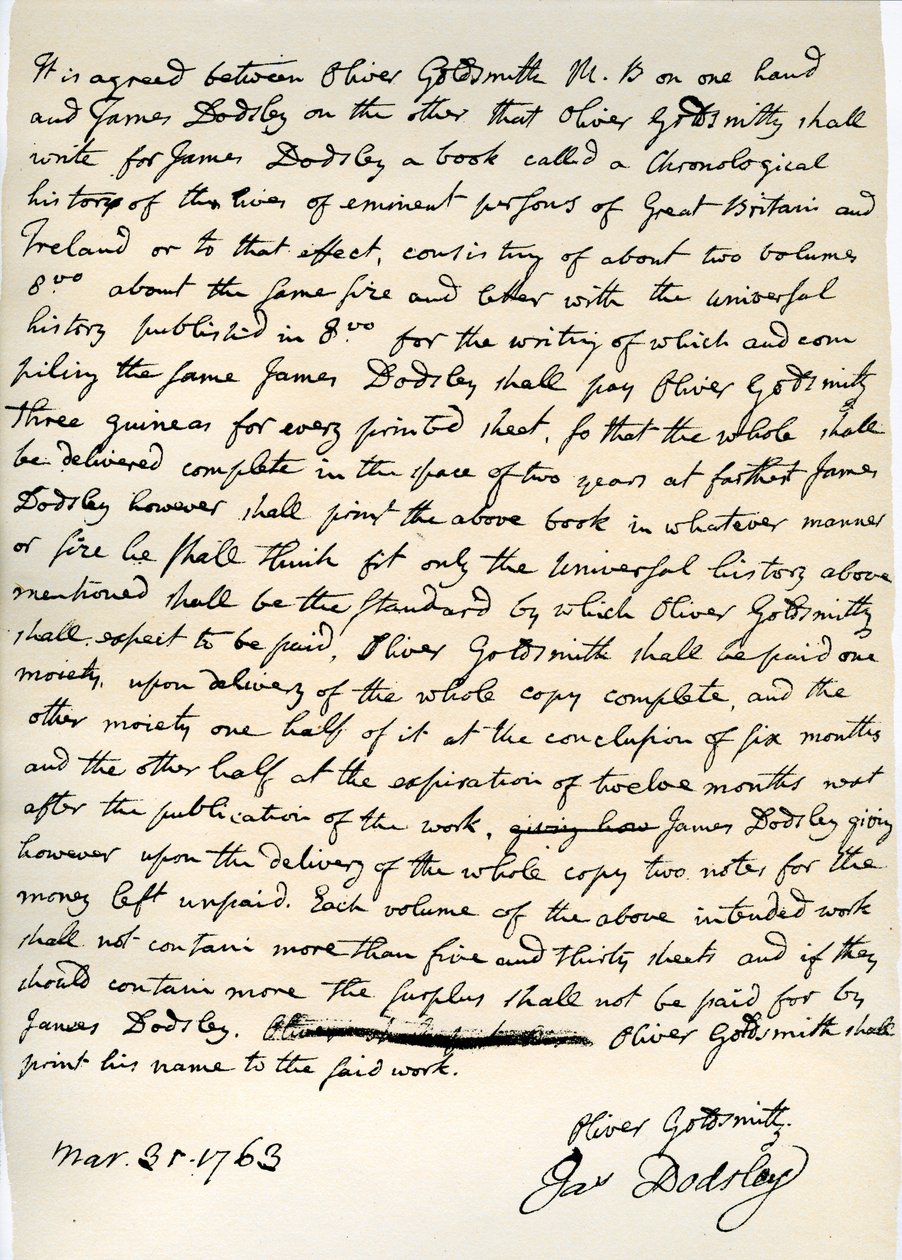 It is agreed between Oliver Goldsmith M. B on one hand
and James Dodsley on the other that Oliver Goldsmith shall
write for James Dodsley a book called a Chronological
history of the lives of eminent persons of Great Britain and
Ireland or to that effect, consisting of about two volumes
8.vo about the same size and letter with the universal
history published in 8.vo for the writing of which and com
piling the same James Dodsley shall pay Oliver Goldsmith
three guineas for every printed sheet, so that the whole shall
be delivered complete in the space of two years at farthest James
Dodsley however shall print the above book in whatever manner
or size he shall think fit only the Universal history above
mentioned shall be the standard by which Oliver Goldsmith
shall expect to be paid, Oliver Goldsmith shall be paid one
moiety, upon delivery of the whole copy complete, and the
other moiety one half of it at the conclusion of six months
and the other half at the expiration of twelve months next
after the publication of the work, giving how James Dodsley giving
however upon the delivery of the whole copy two notes for the
money left unpaid. Each volume of the above intended work
shall not contain more than five and thirty sheets and if they
should contain more the surplus shall not be paid for by
James Dodsley. Oliver Goldsmith shall
print his name to the said work.
Oliver Goldsmith.
Mar. 31. 1763
Jas Dodsley